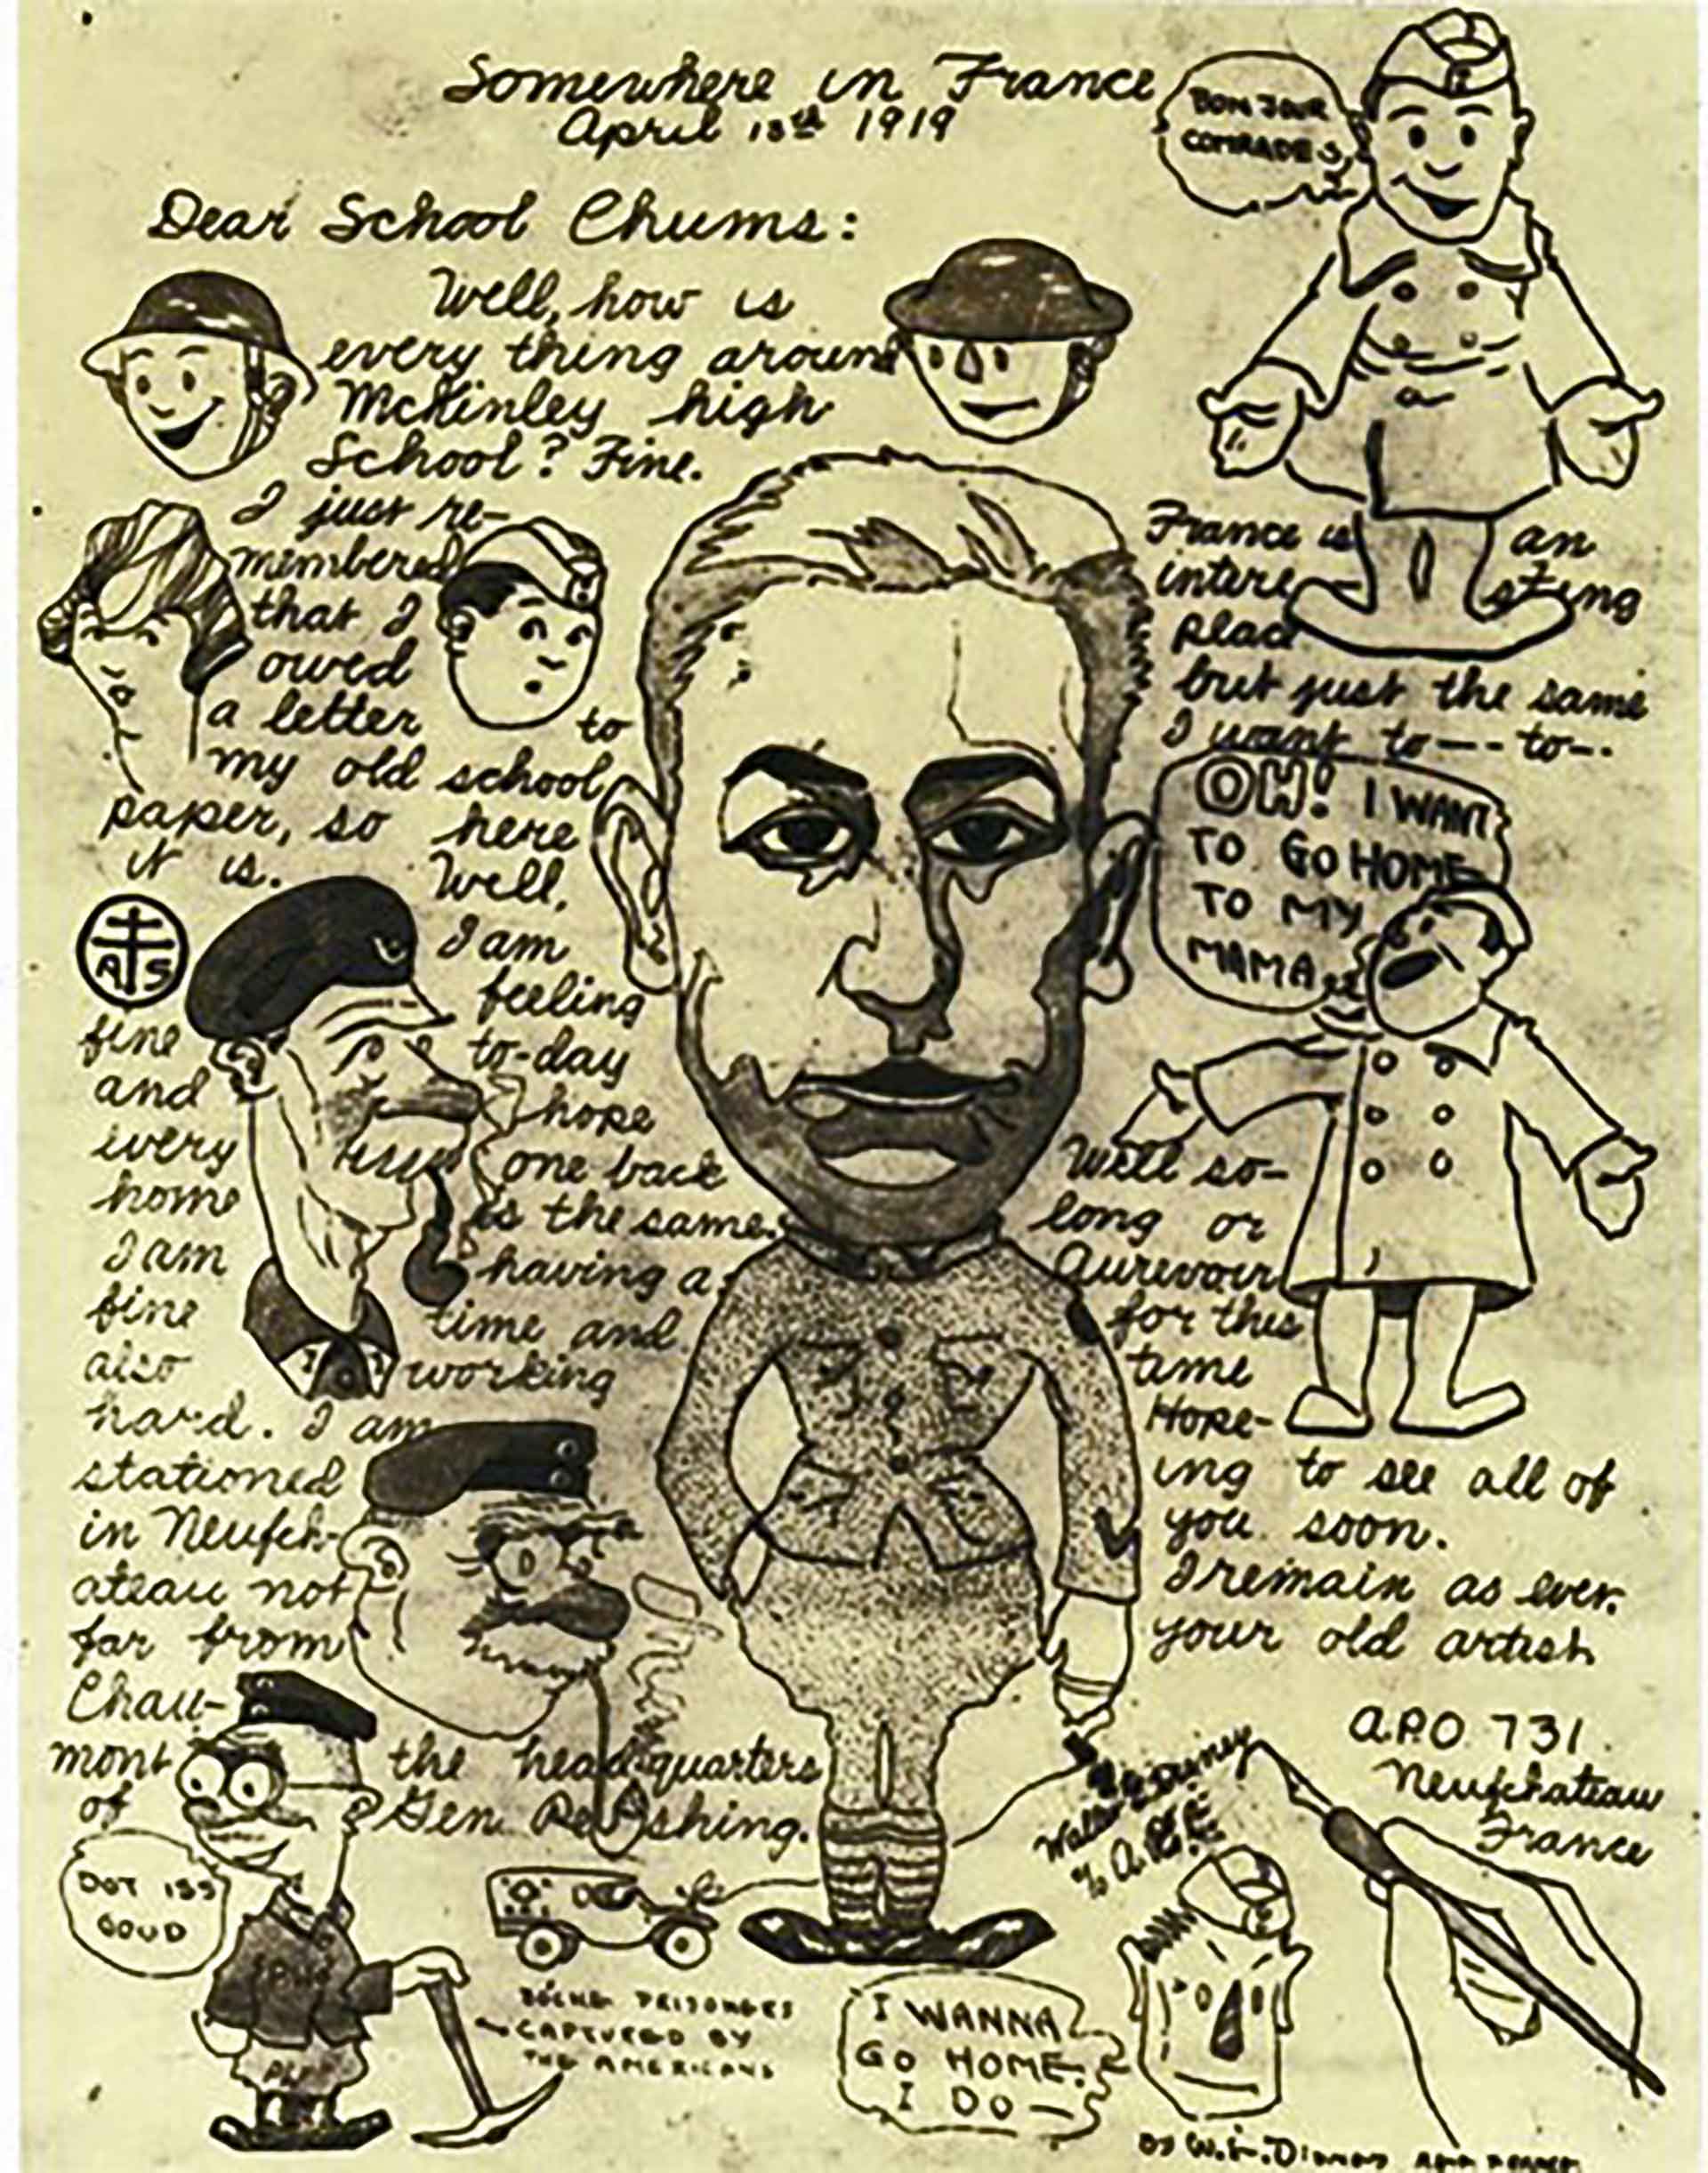 Somewhere in France
April 13th 1919
BON JOUR
COMRADES
Dear School Chums:
Well, how is
every thing around
McKinley high
School? Fine.
I just re-
membered
that I
owed
a letter to
my old school
paper, so here
it is. Well,
I am
A S
feeling
fine to-day
and hope
every one back
home is the same.
I am having a
fine time and
also working
hard. I am
stationed
in Neufch-
ateau not
far from
Chau-
mont the headquarters
of Gen Pershing.
DOT ISS
GOUD
PW
BOCHE PRISONERS
CAPTURED BY
THE AMERICANS
France is an
interesting
place
but just the same
I want to--- to--.
OH! I WANT
TO GO HOME
TO MY
MAMA
Well so-
long or
Aurevoir
for this
time
Hope-
ing to see all of
you soon.
I remain as ever.
your old artist
Walter Disney
A.P.O 731.
Neufchateau
France
I WANNA
GO HOME.
I DO—
BY W.E. Disney